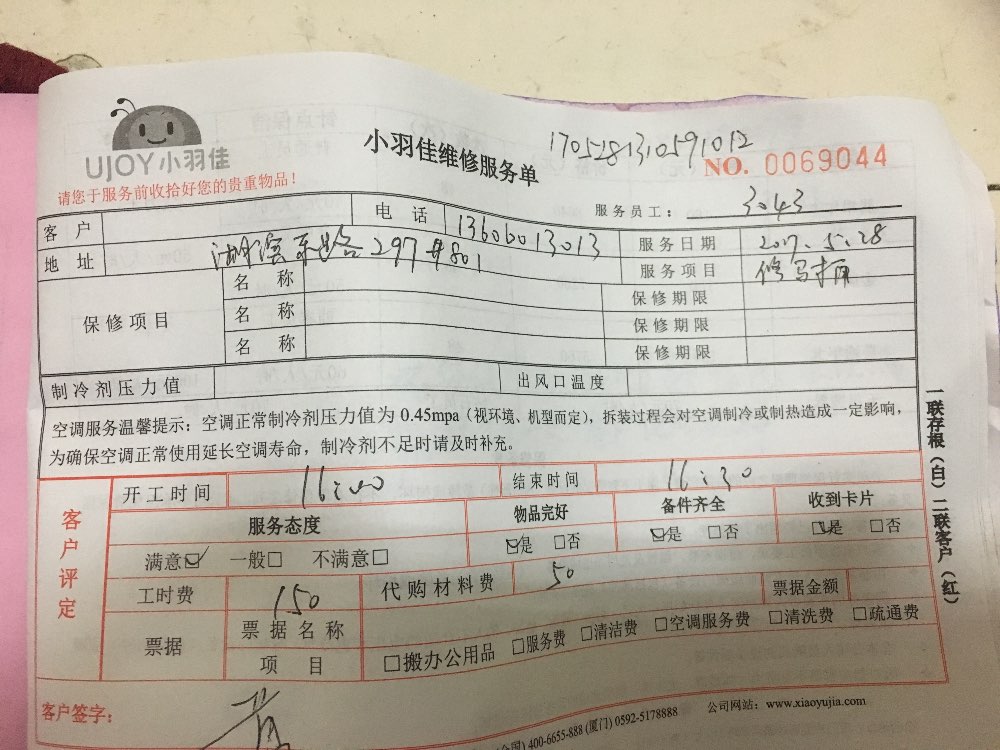 UJOY小羽佳
小羽佳维修服务单
1705281310591012
NO. 0069044
请您于服务前收拾好您的贵重物品！
服务员工： 3043
客户 电话 13606013013 服务日期 2017.5.28
地址 湖滨东路297#801 服务项目 修马桶
保修项目
名称 保修期限
名称 保修期限
名称 保修期限
制冷剂压力值 出风口温度
空调服务温馨提示：空调正常制冷剂压力值为 0.45mpa（视环境、机型而定），拆装过程会对空调制冷或制热造成一定影响，
为确保空调正常使用延长空调寿命，制冷剂不足时请及时补充。
一联存根（白）二联客户（红）
客户评定
开工时间 16:00 结束时间 16:30
服务态度 物品完好 备件齐全 收到卡片
满意☑ 一般□ 不满意□ ☑是 □否 ☑是 □否 ☑是 □否
工时费 150 代购材料费 50 票据金额
票据 票据名称
项目 □搬办公用品 □服务费 □清洁费 □空调服务费 □清洗费 □疏通费
客户签字：
400-6655-888 (厦门) 0592-5178888 公司网站：www.xiaoyujia.com